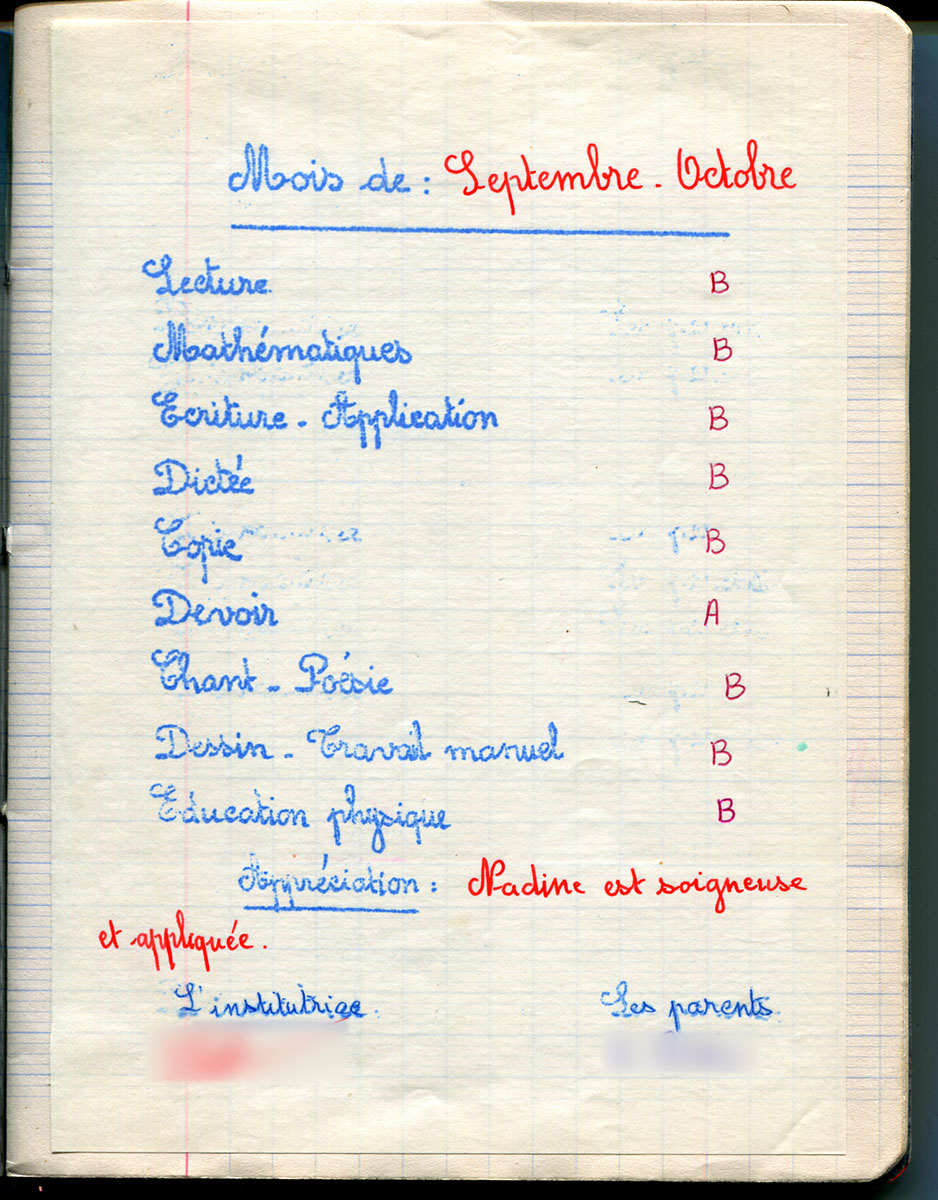 Mois de : Septembre - Octobre
Lecture B
Mathématiques B
Ecriture - Application B
Dictée B
Copie B
Devoir A
Chant - Poésie B
Dessin - Travail manuel B
Education physique B
Appréciation : Nadine est soigneuse
et appliquée.
L'institutrice. Les parents.